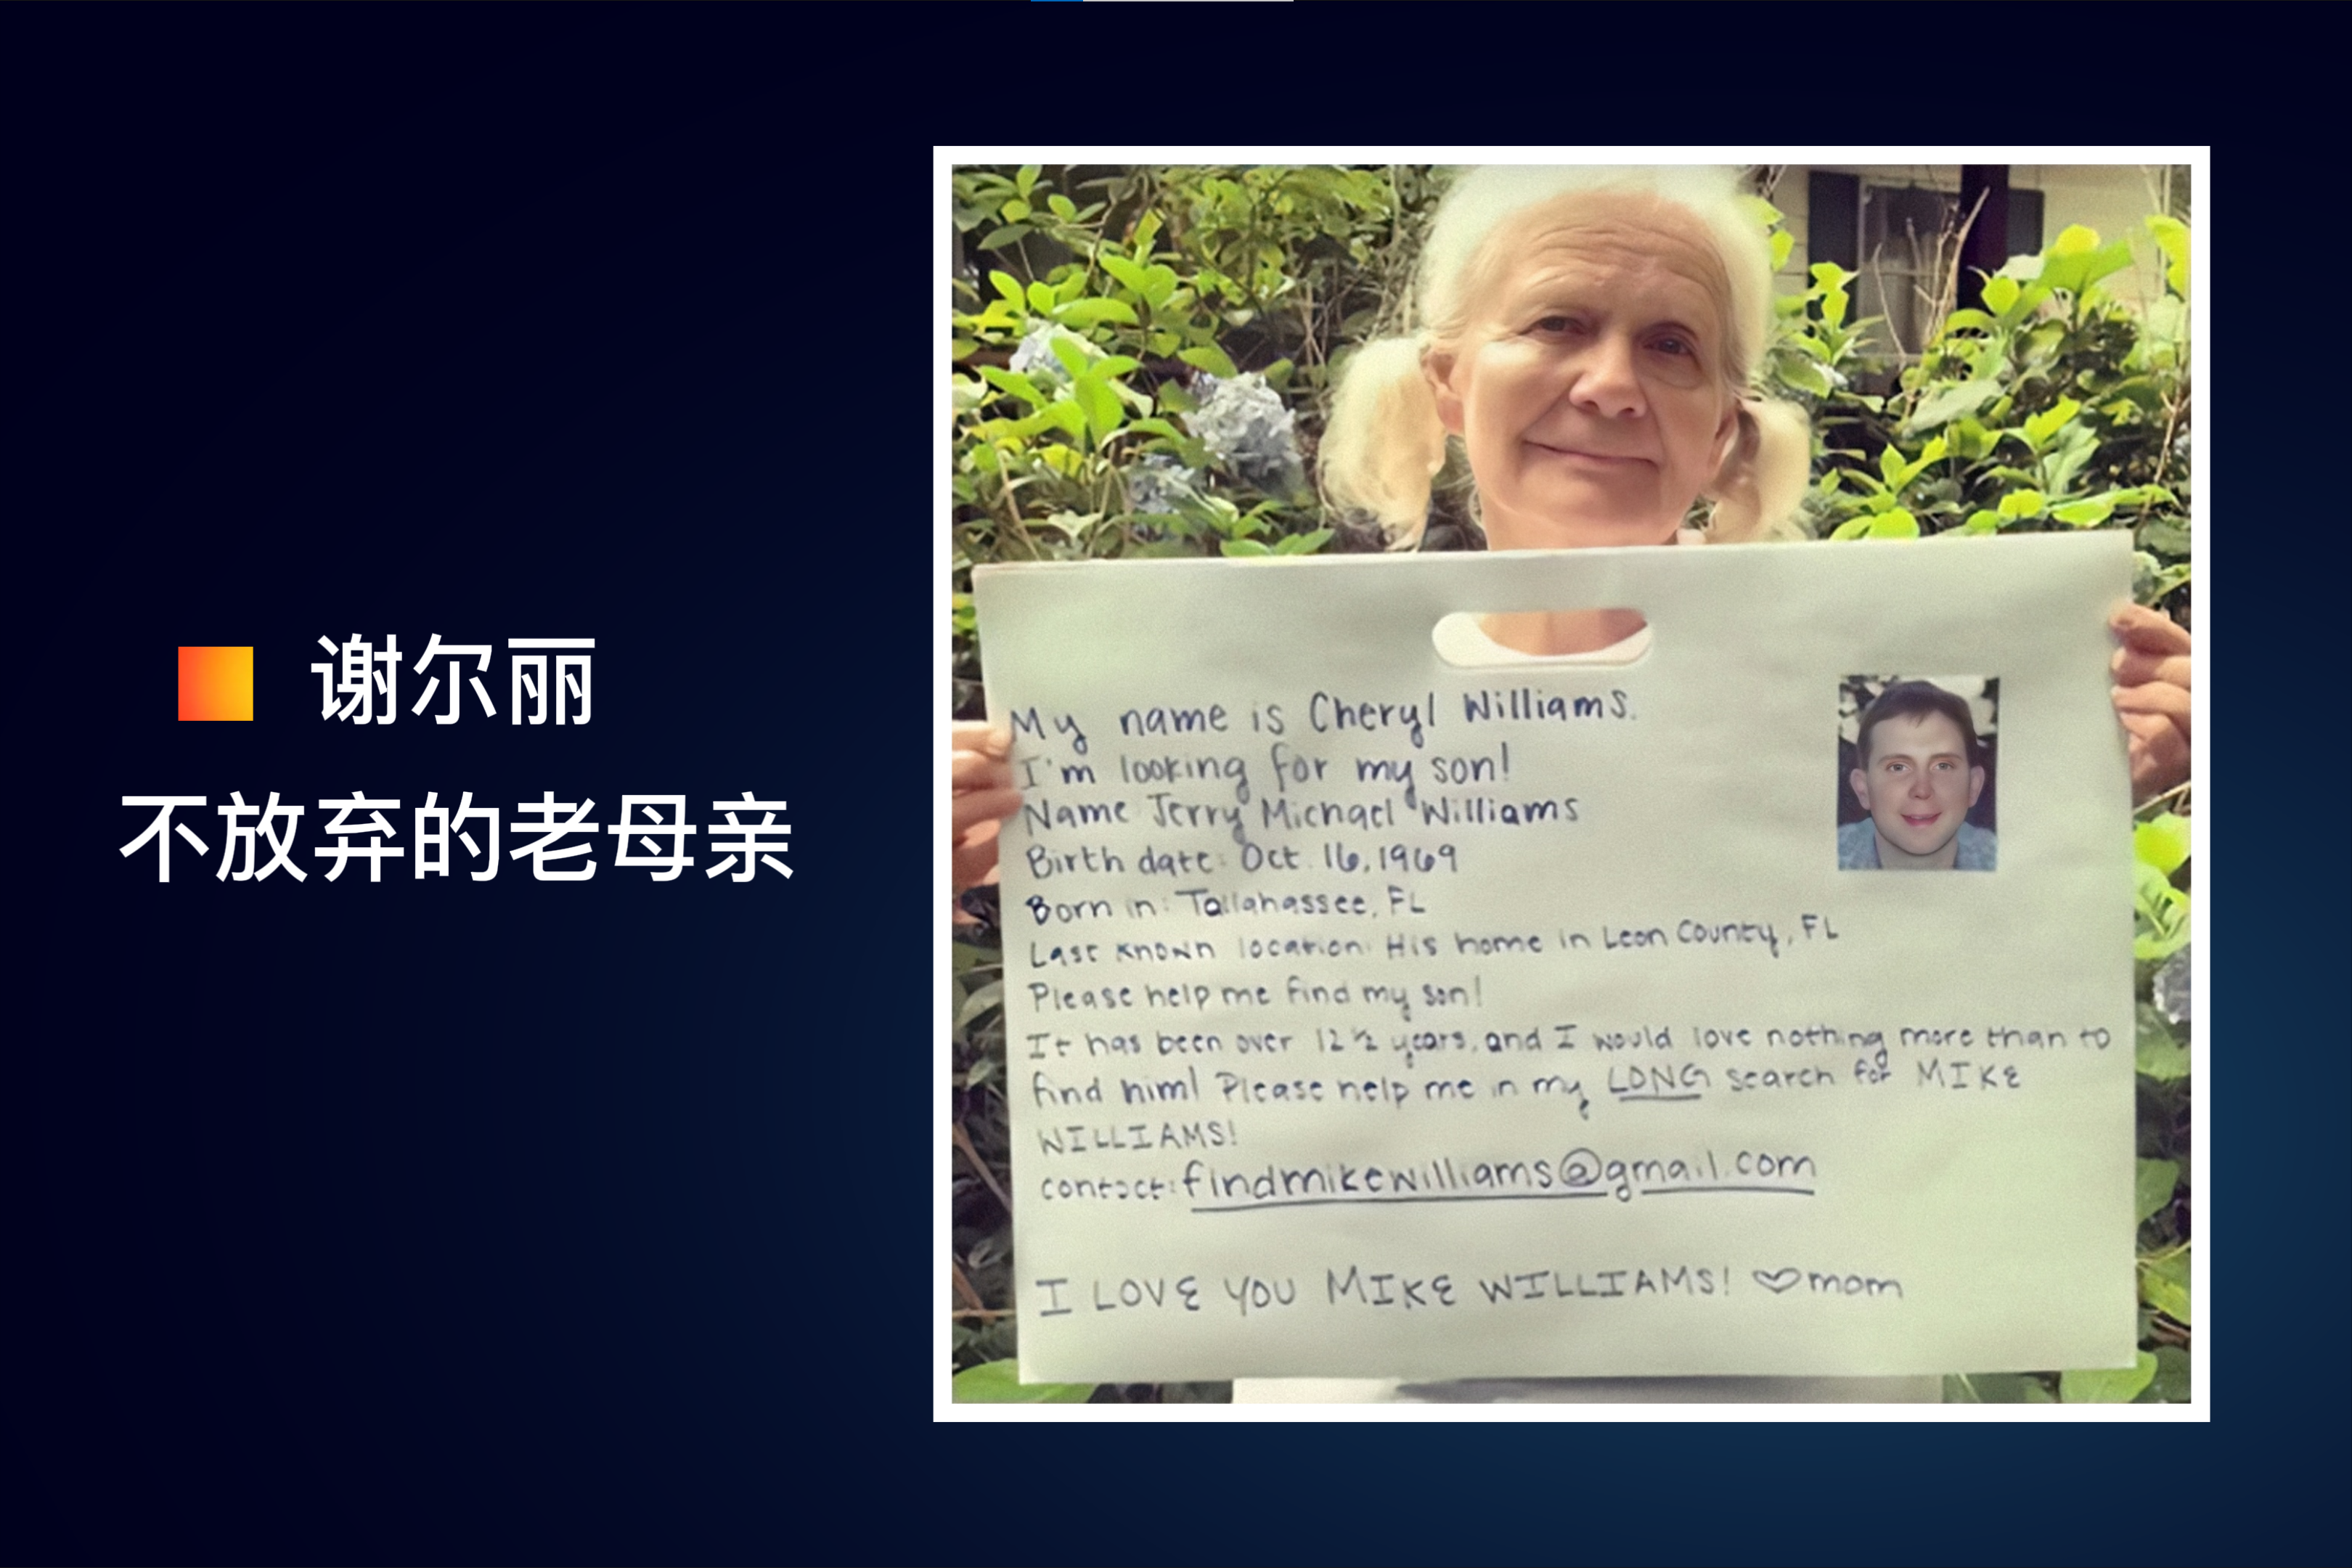 谢尔丽
不放弃的老母亲
My name is Cheryl Williams.
I'm looking for my son!
Name Jerry Michael Williams
Birth date: Oct. 16, 1969
Born in: Tallahassee, FL
Last known location: His home in Leon County, FL
Please help me find my son!
It has been over 12 ½ years, and I would love nothing more than to
find him! Please help me in my LONG search for MIKE
WILLIAMS!
contact: findmikewilliams@gmail.com
I LOVE YOU MIKE WILLIAMS! ♡mom